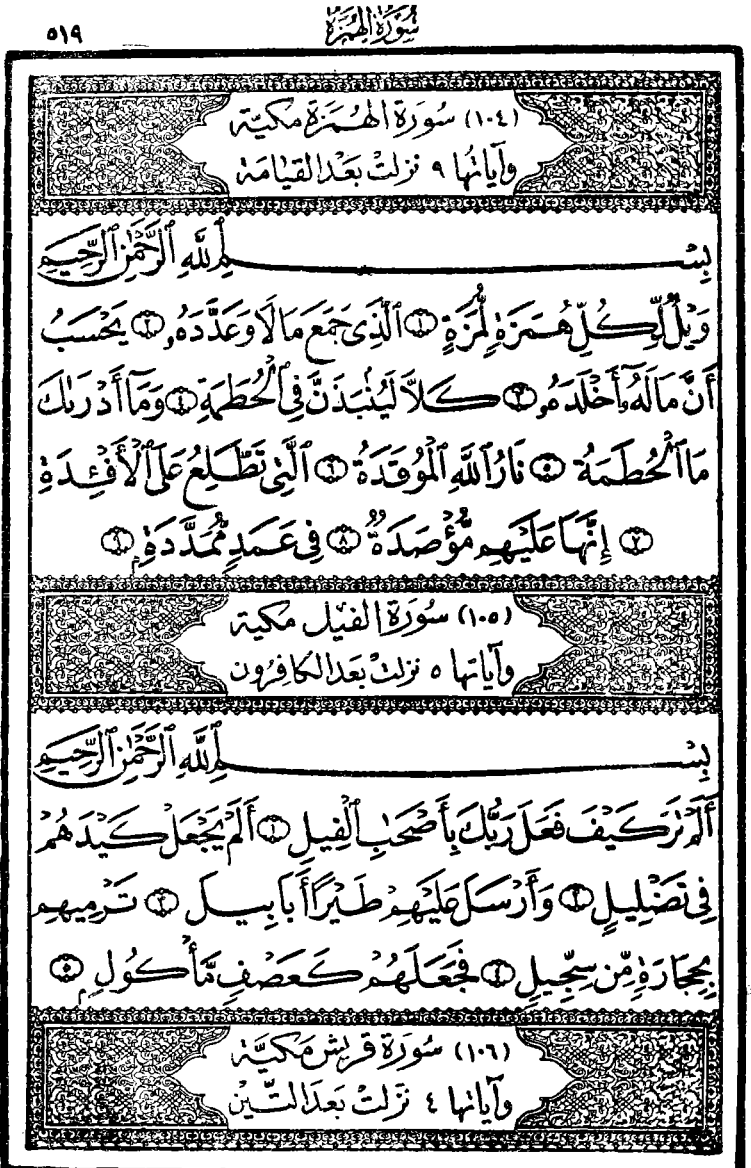 ٥١٩
سُورَةُ الهُمَزَة
(١٠٤) سُورَة الهُمَزَة مَكيّة
وآياتهُا ٩ نزلتْ بَعْد القيَامَة
بِسْـــــمِ ٱللَّهِ ٱلرَّحْمَٰنِ ٱلرَّحِيمِ
وَيْلٌ لِّكُلِّ هُمَزَةٍ لُّمَزَةٍ ۝١ ٱلَّذِى جَمَعَ مَالًا وَعَدَّدَهُۥ ۝٢ يَحْسَبُ
أَنَّ مَالَهُۥٓ أَخْلَدَهُۥ ۝٣ كَلَّا لَيُنۢبَذَنَّ فِى ٱلْحُطَمَةِ ۝٤ وَمَآ أَدْرَىٰكَ
مَا ٱلْحُطَمَةُ ۝٥ نَارُ ٱللَّهِ ٱلْمُوقَدَةُ ۝٦ ٱلَّتِى تَطَّلِعُ عَلَى ٱلْأَفْـِٔدَةِ
۝٧ إِنَّهَا عَلَيْهِم مُّؤْصَدَةٌ ۝٨ فِى عَمَدٍ مُّمَدَّدَةٍۭ ۝٩
(١٠٥) سُورَة الفيْل مَكيَة
وآيَاتها ٥ نزلتْ بَعْد الكافِرُون
بِسْـــــمِ ٱللَّهِ ٱلرَّحْمَٰنِ ٱلرَّحِيمِ
أَلَمْ تَرَ كَيْفَ فَعَلَ رَبُّكَ بِأَصْحَٰبِ ٱلْفِيلِ ۝١ أَلَمْ يَجْعَلْ كَيْدَهُمْ
فِى تَضْلِيلٍ ۝٢ وَأَرْسَلَ عَلَيْهِمْ طَيْرًا أَبَابِيلَ ۝٣ تَرْمِيهِم
بِحِجَارَةٍ مِّن سِجِّيلٍ ۝٤ فَجَعَلَهُمْ كَعَصْفٍ مَّأْكُولٍۭ ۝٥
(١٠٦) سُورَة قريش مَكيَّة
وآيَاتها ٤ نَزَلتْ بَعَد التِّين